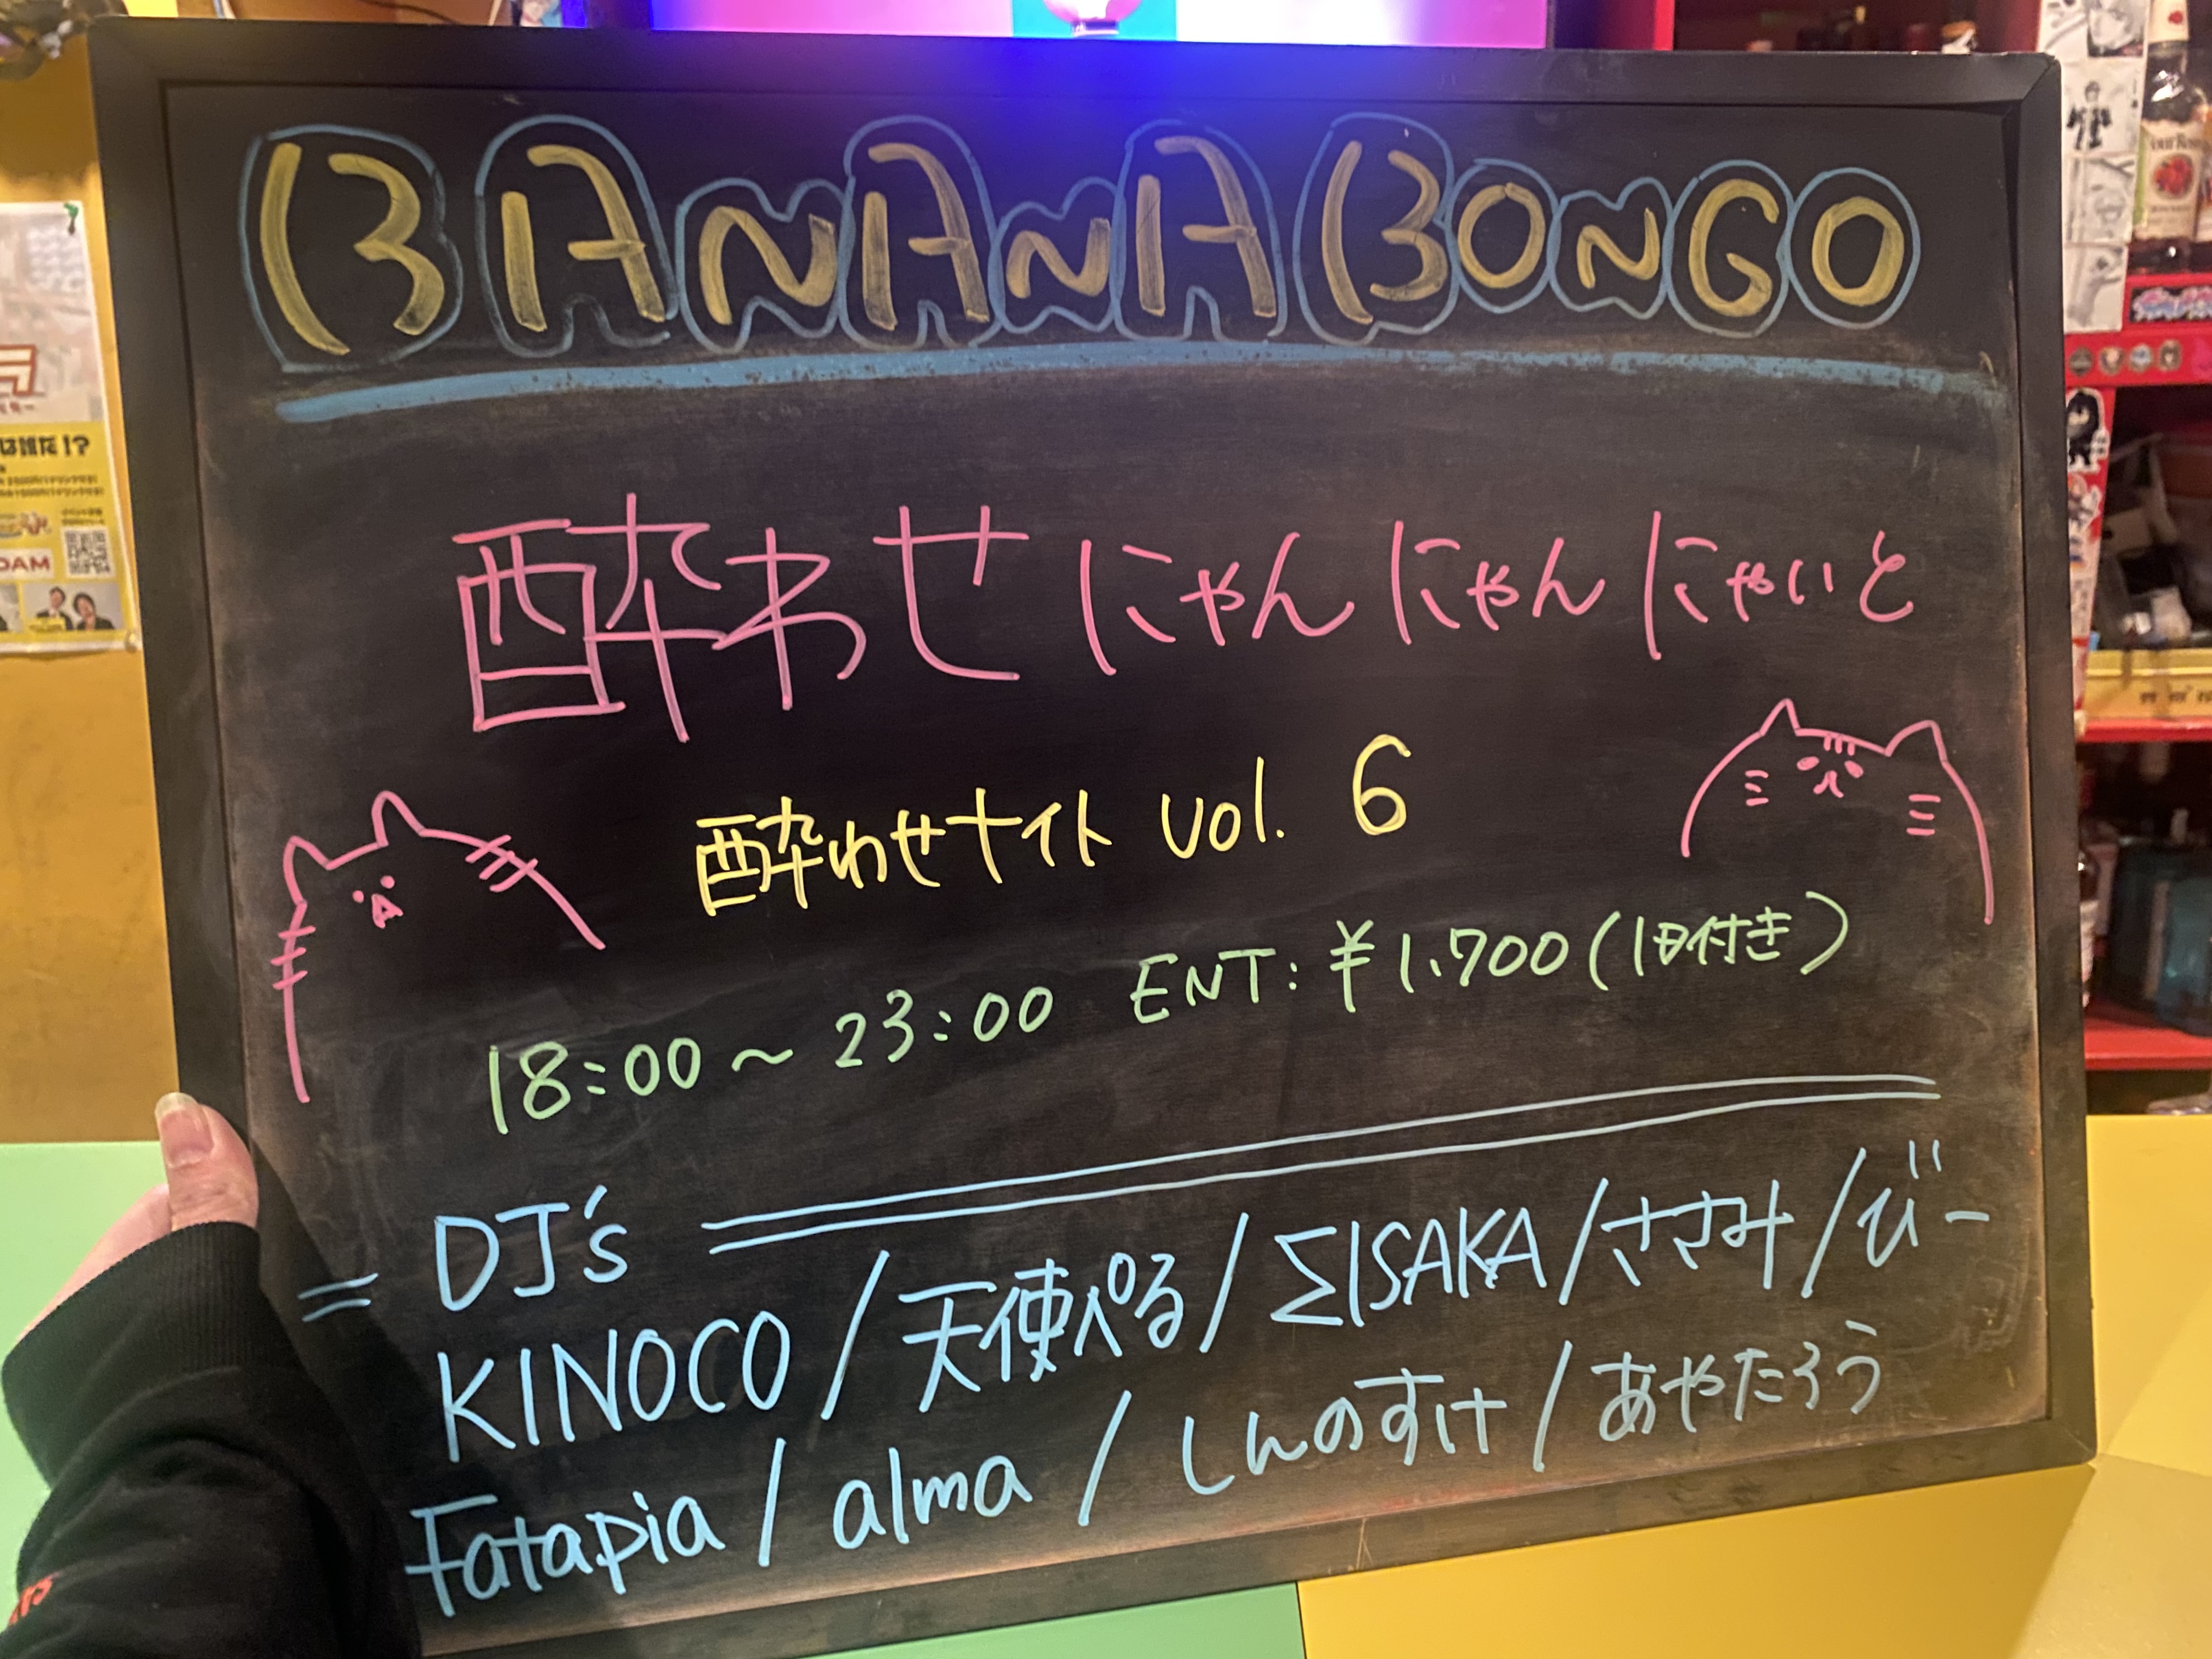 BANANA BONGO
酔わせにゃんにゃんにゃいと
酔わせナイト vol. 6
18:00～23:00 ENT: ¥1.700(1D付き)
= DJ's =
KINOCO / 天使ぺる / ΣISAKA / ささみ / びー
Fatapia / alma / しんのすけ / あやたろう
は誰だ!?
DAM